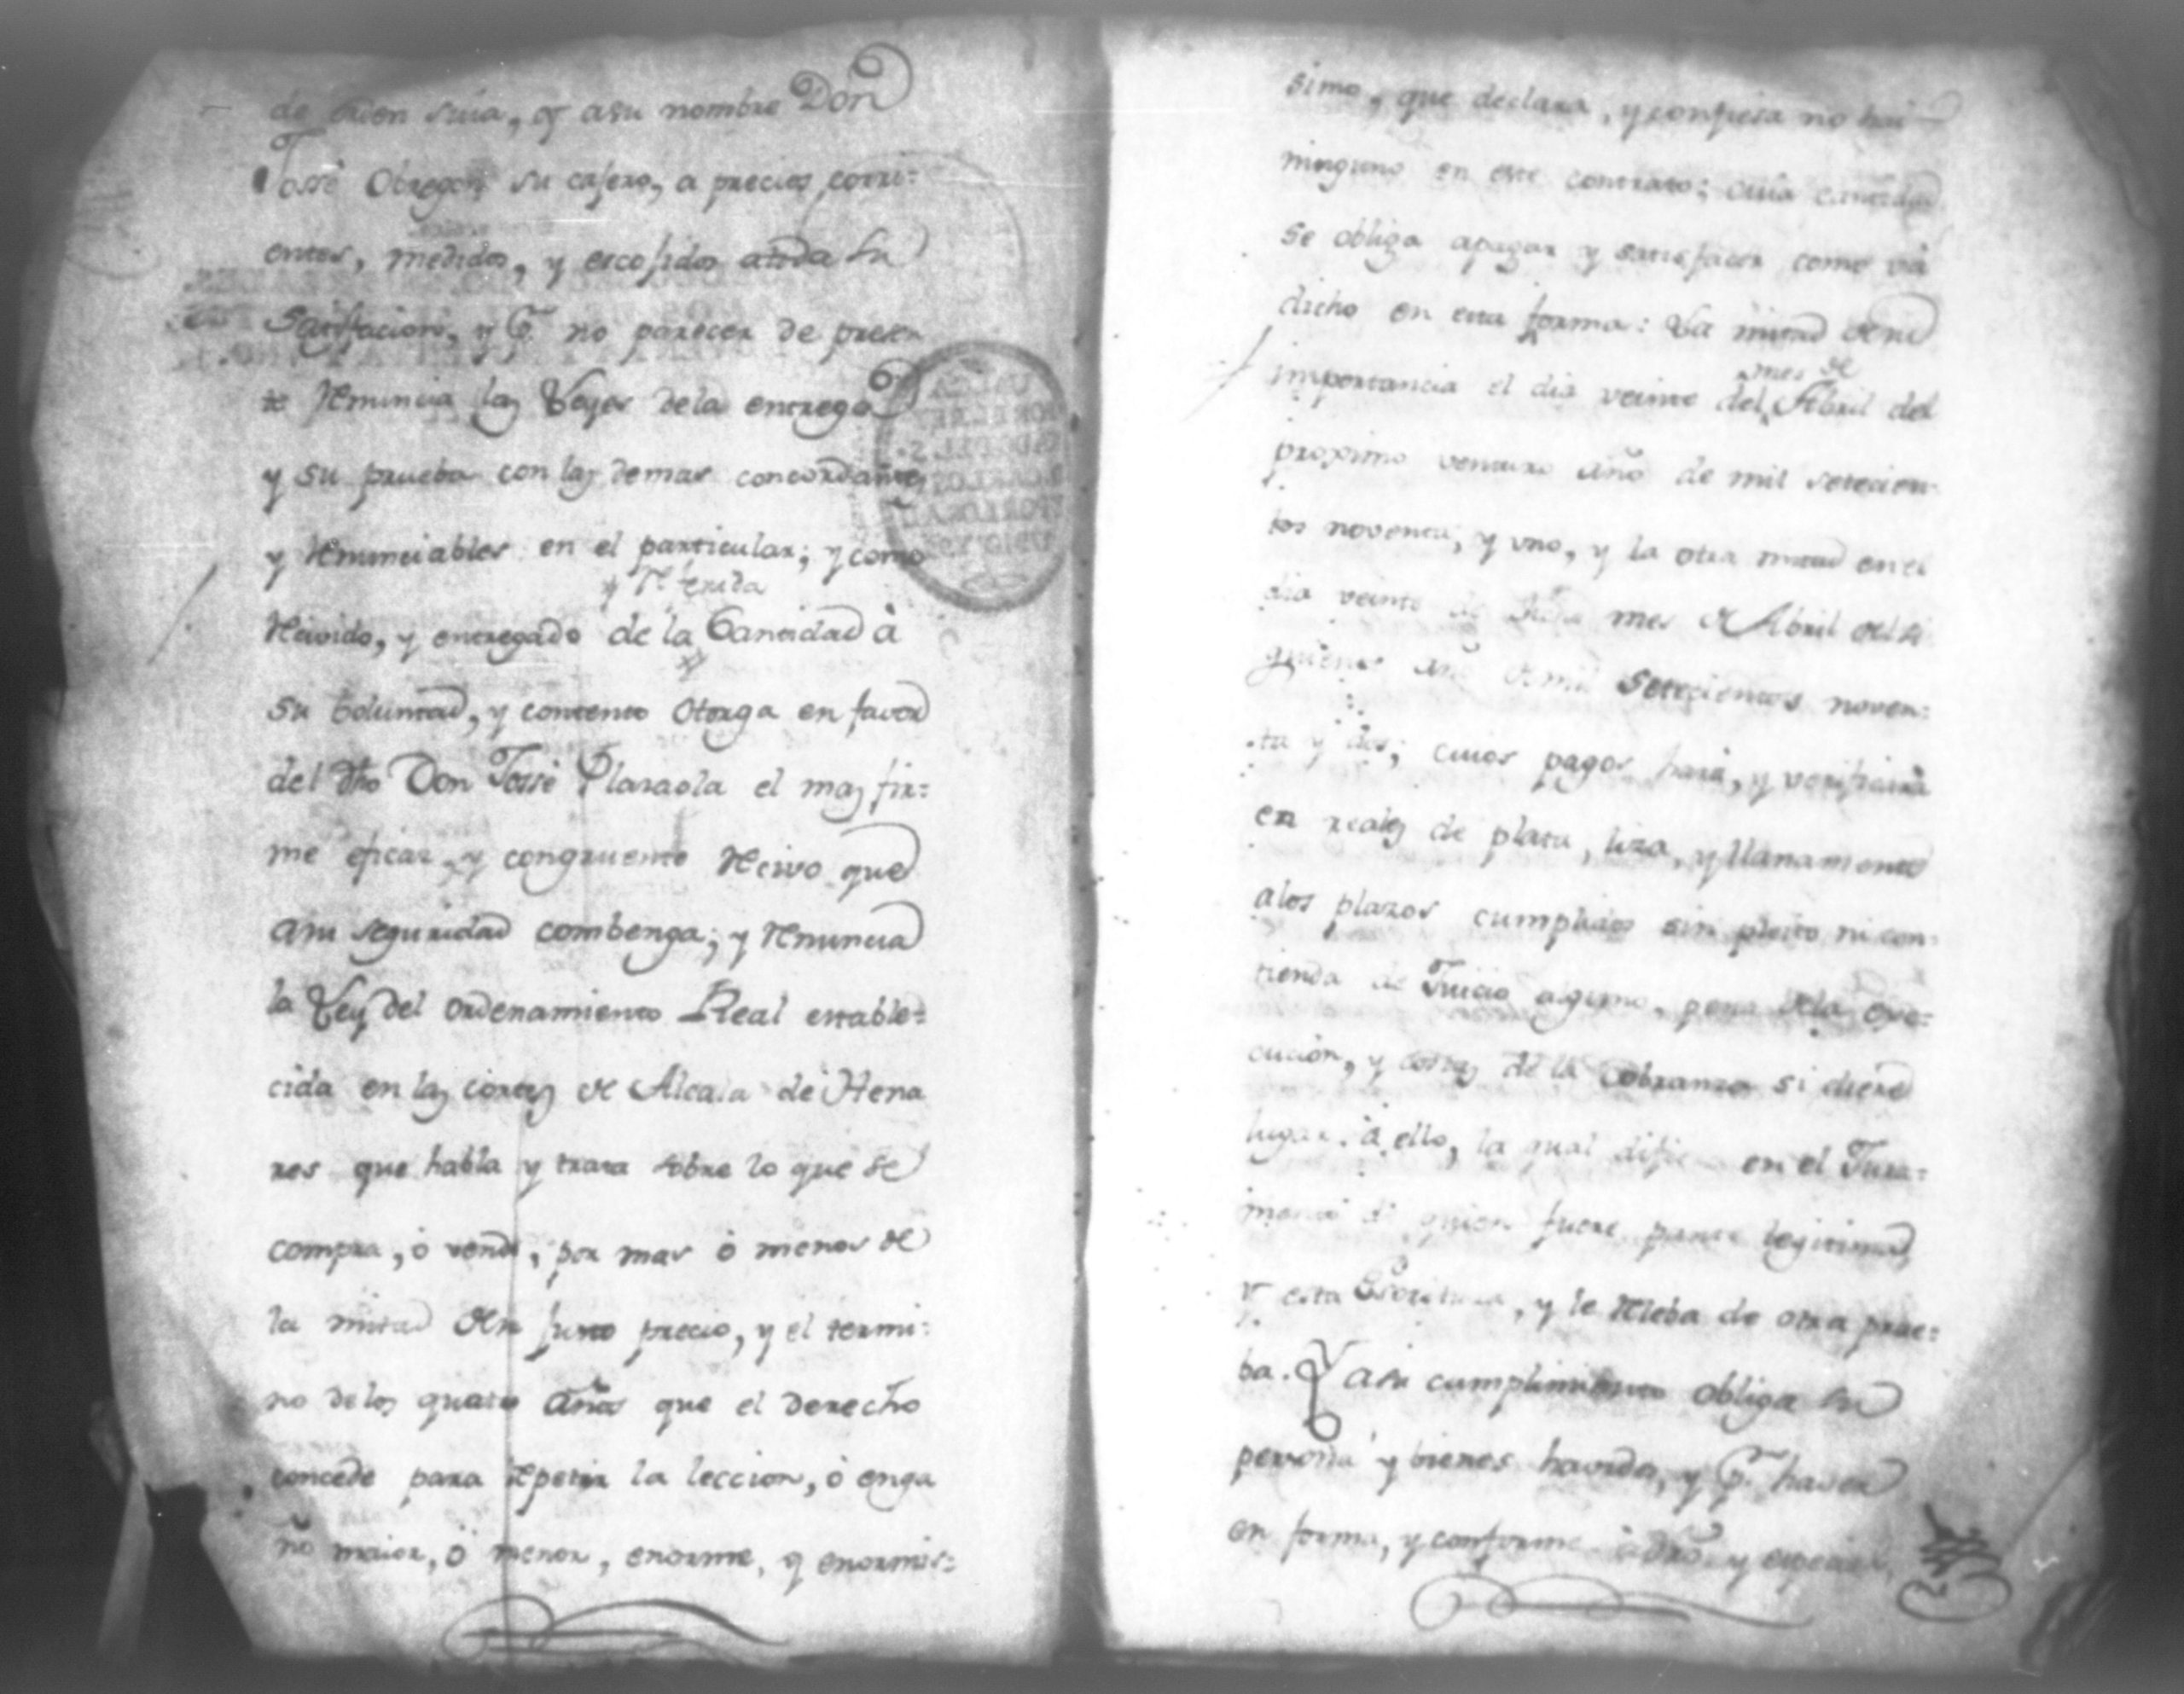 de orden suia, y asu nombre Don
Jossè Obregon su cajero, a precios corri=
entes, medidos, y escojidos atoda su
Satisfacion, y P.r no parecer de presen
te Renuncia las Leyes dela entrega
y su prueba con las demas concordantes
y Renunciables en el particular; y como
y Referida
Recivido, y entregado de la Cantidad à
su boluntad, y contento Otorga en favor
del dho Don Jossè Plaraola el mas fir=
me eficaz, y congruente Recivo que
asu seguridad combenga; y Renuncia
la Ley del ordenamiento Real estable=
cida en las cortes de Alcala de Hena
res que habla y trata sobre lo que se
compra, ò vende, por mas ò menos de
la mitad desu justo precio, y el termi=
no delos quatro años que el derecho
concede para Repetir la leccion, ò enga
ño maior, ò menor, enorme, y enormis=
simo, que declara, y confiesa no hai
ninguno en este contrato; cuia cantidad
se obliga apagar y satisfacer como và
dicho en esta forma: La mitad desu
mes de
importancia el dia veinte del Abril del
proximo venturo año de mil setecien
tos noventa, y uno, y la otra mitad en el
dia veinte de dicho mes de Abril del si
guiente año de mil setecientos noven=
ta y dos; cuios pagos harà, y verificarà
en reales de plata, liza, y llanamente
alos plazos cumplidos sin pleito ni con=
tienda de Juicio alguno, pena dela exe=
cucion, y costas de la cobranza si diere
lugar à ello, la qual difiere en el Jura=
mento de quien fuere parte legitima,
y esta Escritura, y le Releba de otra prue=
ba. Y asu cumplimiento obliga su
persona y bienes havidos, y P.r haver
en forma, y conforme à dro. y especial